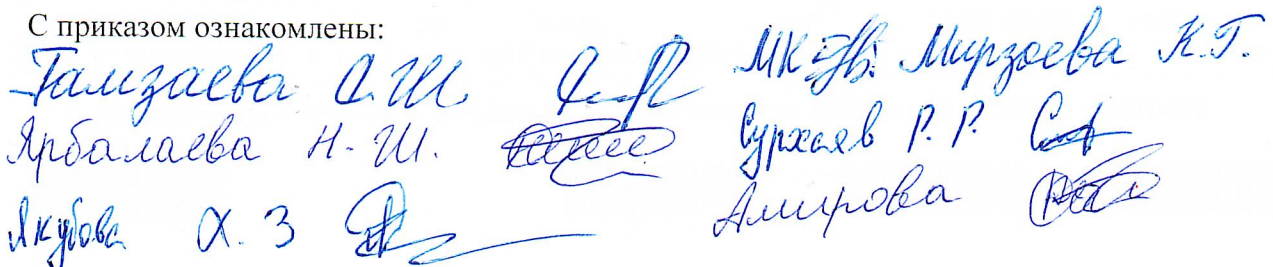 С приказом ознакомлены:
Гамзаева С.Ш.
Ярбалаева Н.Ш.
Якубова Х. З
Мирзоева К.Г.
Сурхаев Р. Р.
Амирова